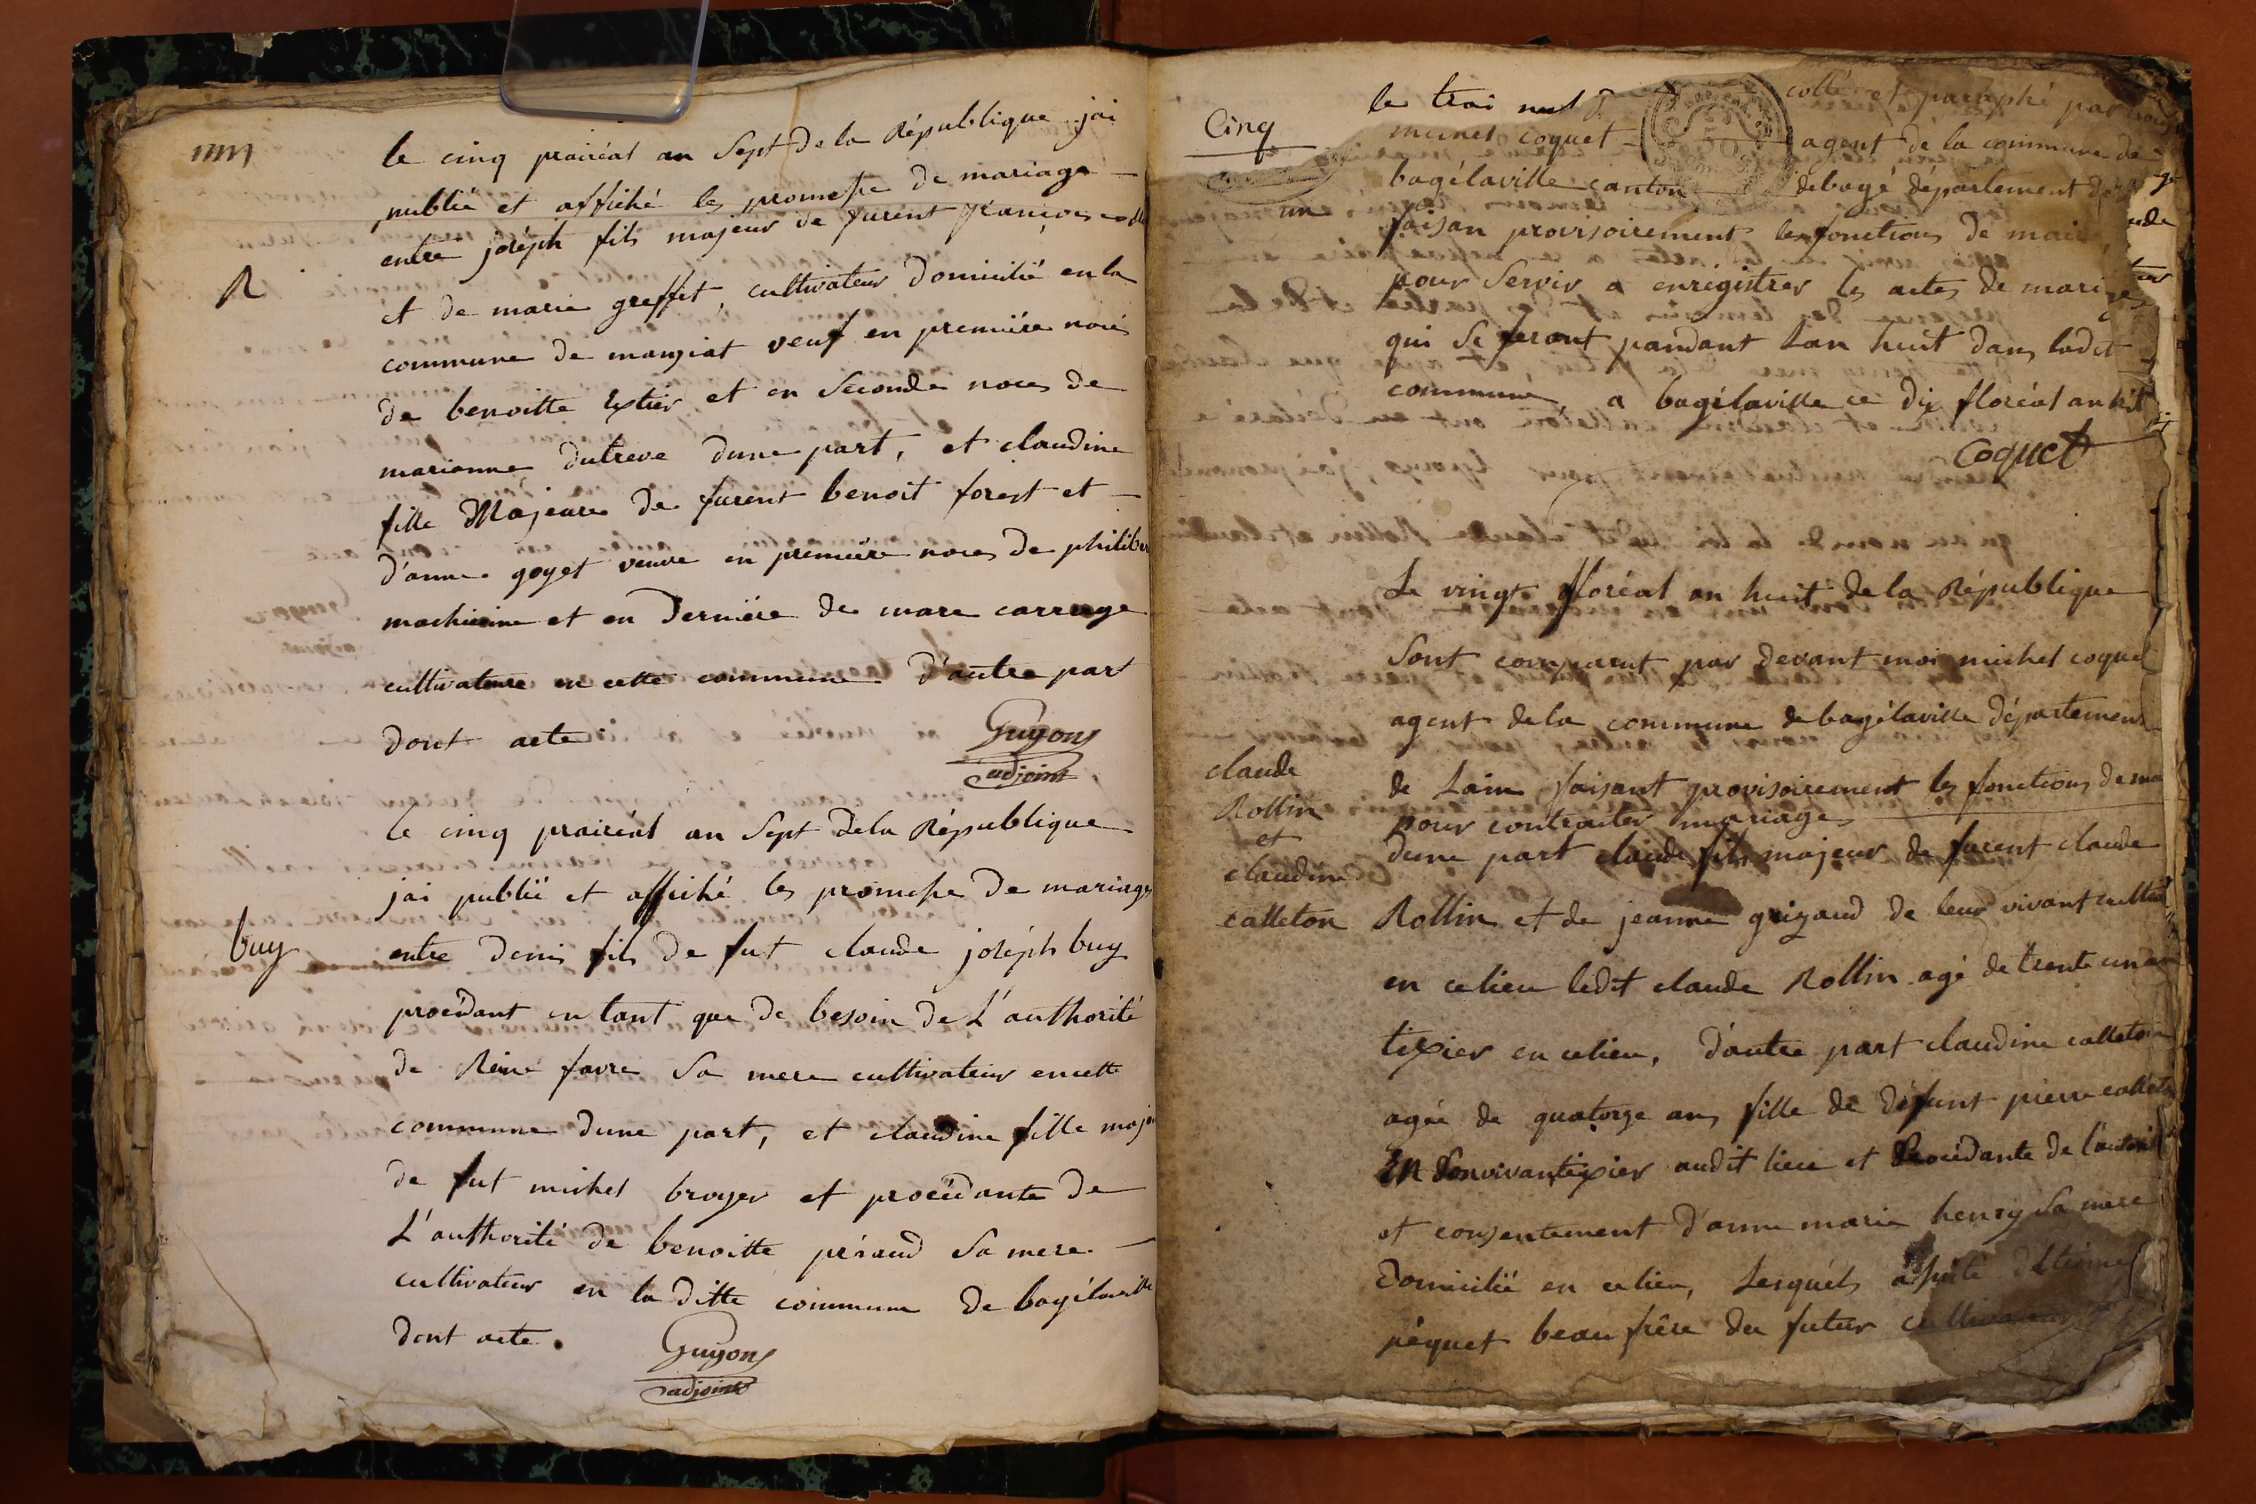 le cinq prairéal an Sept de la République jai
publié et affiché les promesse de mariage
entre joséph fils majeur de furent françois
R
et de marie greffet, cultivateur domicilié en la
commune de manziat veuf en premiére noces
de benoitte Extier et en Seconde noces de
marianne dutreve dune part, et claudine
fille Majeure de furent benoit forest et
d'anne goyet veuve en premiére noces de philiber
et en derniére de marc carruge
cultivateure en cette commune d'autre part
dont acte
Guyons
adjoint
le cinq prairéal an Sept dela République
jai publié et affiché les promesse de mariage
buy
entre denis fils de fut claude joséph buy
procédant en tant que de besoin de L'authorité
de Reine favre Sa mere cultivateur en cette
commune dune part, et claudine fille maje
de fut michel broyer et procédante de
L'authorité de benoitte péraud Sa mere
cultivateur en la ditte commune de bagélaville
dont acte.
Guyons
adjoint
Cinq
le collé et paraphé par
coquet agent de la commune de
bagélaville canton debagé département
faisan provisoirement les fonctions de maire
pour Servir a enrégistrer les actes de mariges
qui Se feront pandant Lan huit dans ladit
commune a bagélaville ce dix floréal an hit
Coquet
Le vingt floréal an huit de la République
Sont comparut par devant moi michel coquet
agent dela commune de bagélaville département
claude
Rollin
et
claudine
calleton
de Lain faisant provisoirement les fonctions de ma
pour contracter mariages
dune part claude fils majeur de furent claude
Rollin et de jeanne grizaud de leur vivant cultiv
en ce lieu ledit claude Rollin agé de trente un an
tixier en ce lieu, d'autre part claudine calleton
agée de quatorze ans fille de défunt pierre calleton
En Sonvivantixier audit lieu et Procédante de l'autorit
et consentement d'anne marie henry Sa mere
domicilié en ce lieu, Lesquéls
péquet beau frêre du futur cultivateur